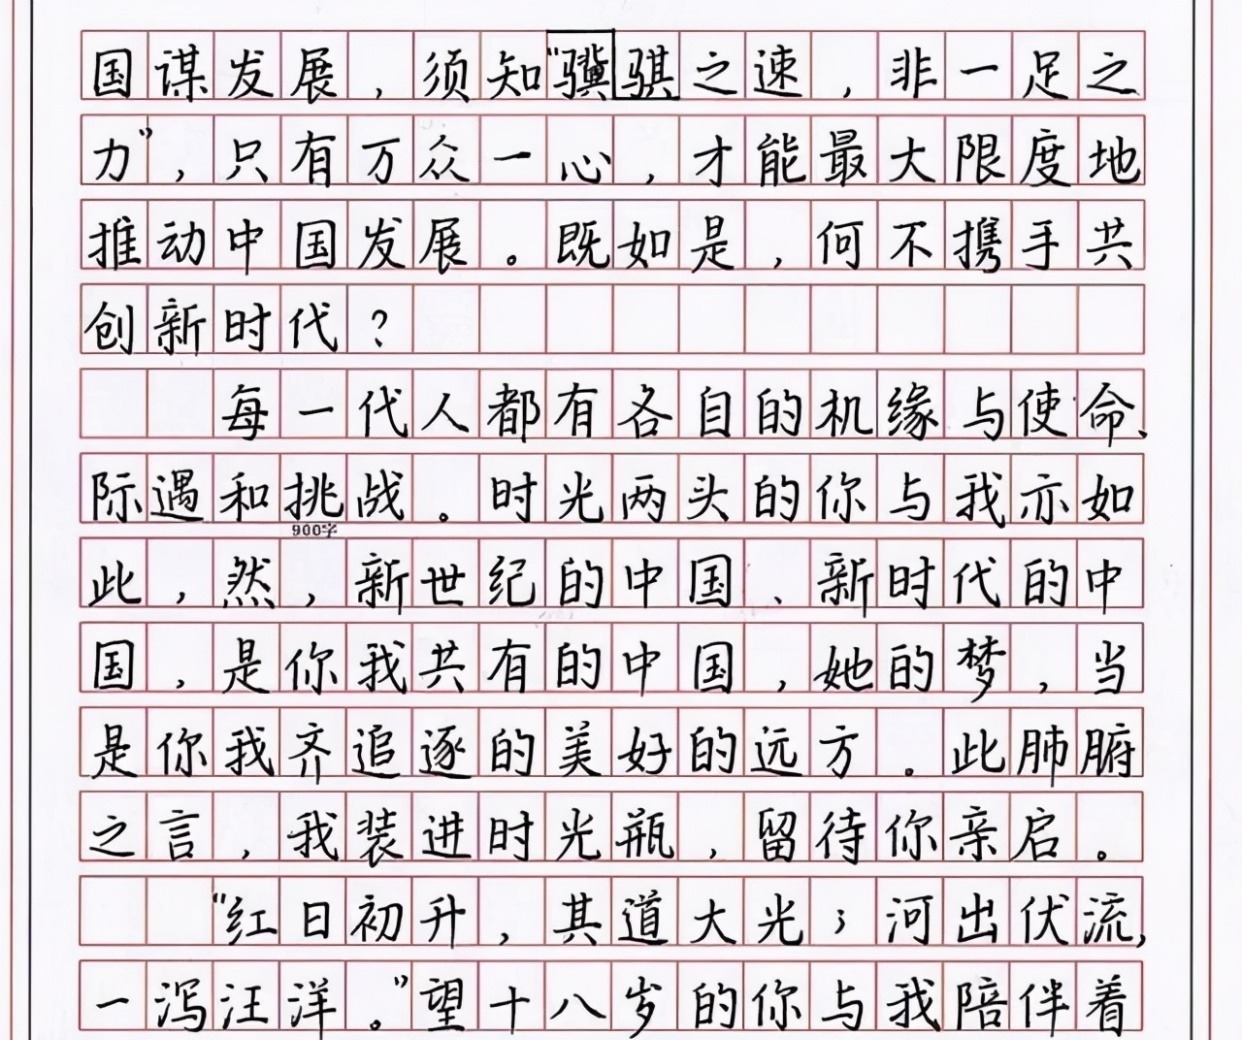 国谋发展，须知“骥骐之速，非一足之
力”，只有万众一心，才能最大限度地
推动中国发展。既如是，何不携手共
创新时代？
每一代人都有各自的机缘与使命、
际遇和挑战。时光两头的你与我亦如
900字
此，然，新世纪的中国、新时代的中
国，是你我共有的中国，她的梦，当
是你我齐追逐的美好的远方。此肺腑
之言，我装进时光瓶，留待你亲启。
“红日初升，其道大光；河出伏流，
一泻汪洋。”望十八岁的你与我陪伴着